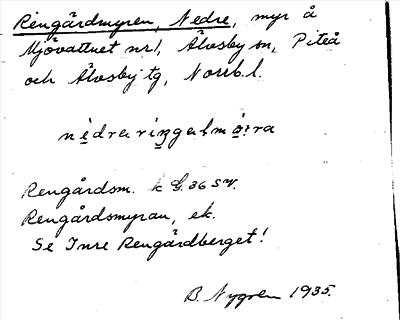 Rengårdmyren, Nedre, myr å
Mjövattnet nr 1, Älvsby sn, Piteå
och Älvsby tg, Norrb. l.
nèdrarìŋgalmø:ra
Rengårdsm. k G. 36 SV.
Rengårdsmyran, ek.
Se Inre Rengårdberget!
B. Nygren 1935.